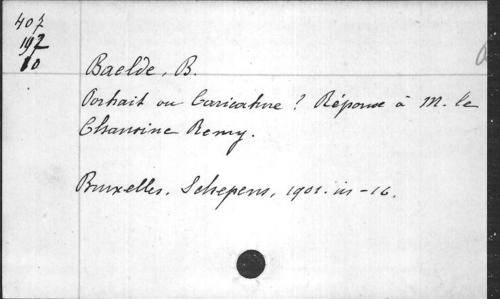 407
197
10
Baelde, B.
Portrait ou Caricature ? Réponse à M. le
Chanoine Remy.
Bruxelles. Schepens, 1901. in-16.